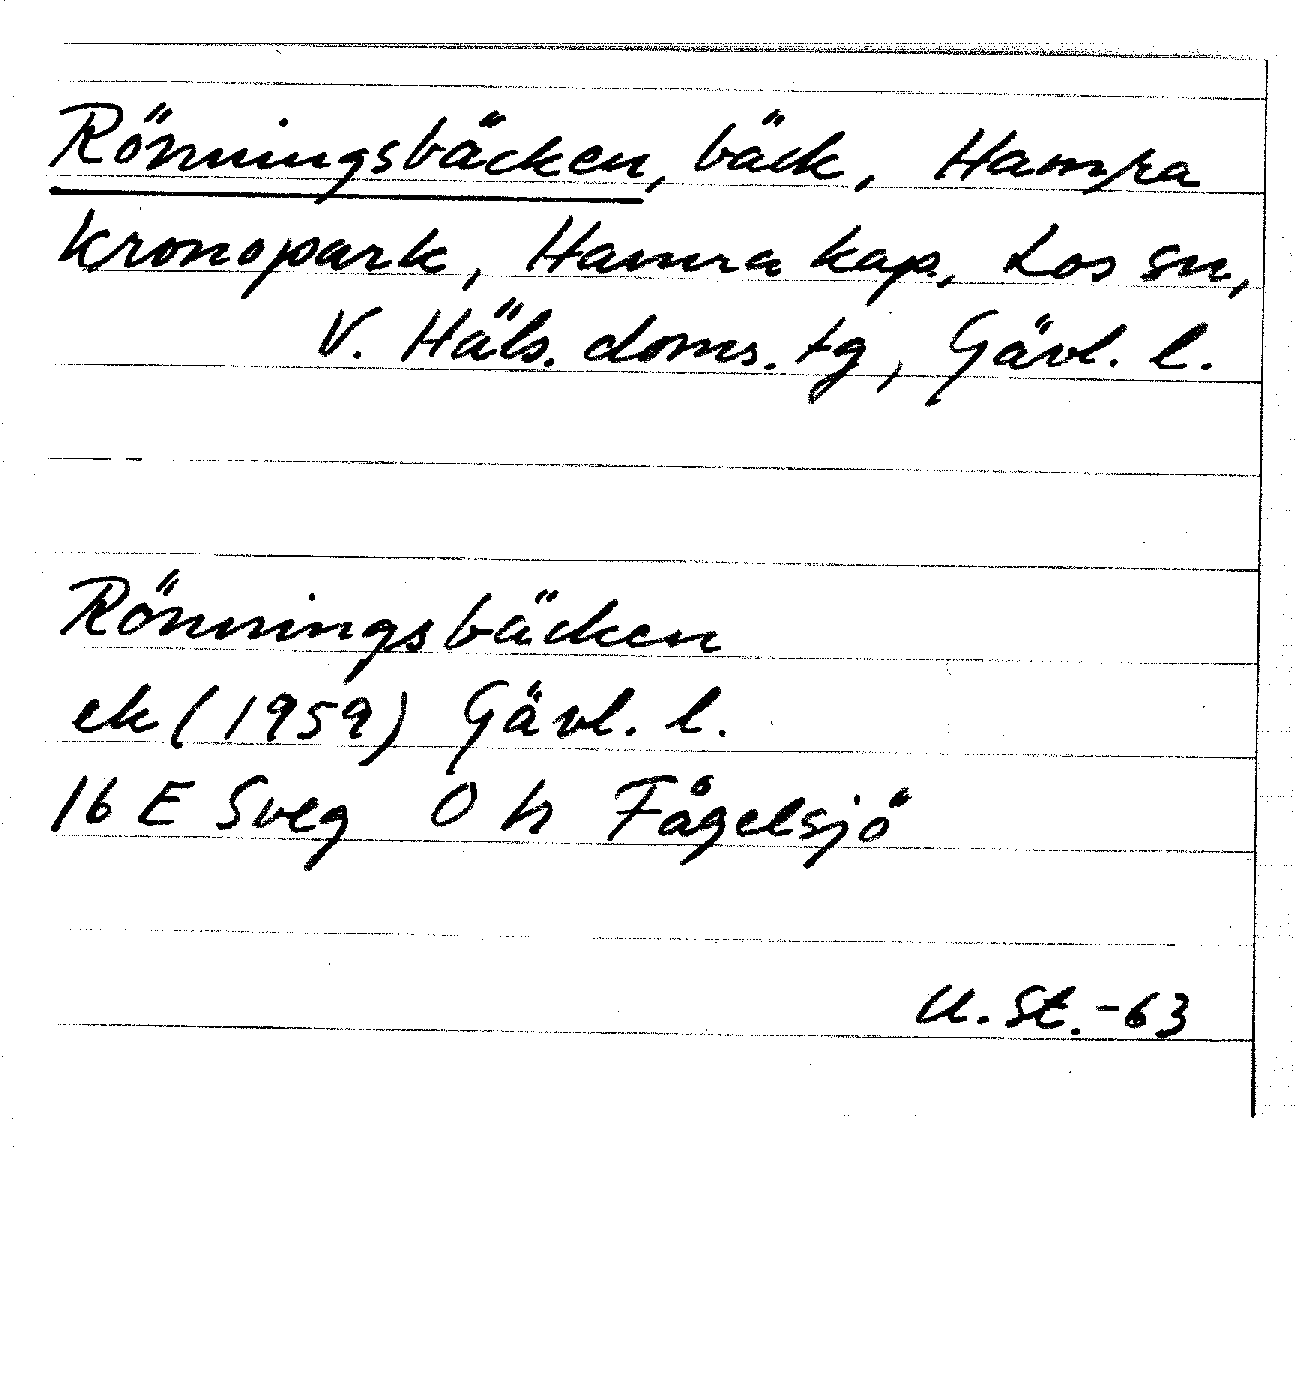 Rönningsbäcken, bäck, Hamra
kronopark, Hamra kap., Los sn,
V. Häls. doms. tg, Gävl. l.
Rönningsbäcken
ek (1959) Gävl. l.
16 E Sveg O h Fågelsjö
U. St. -63